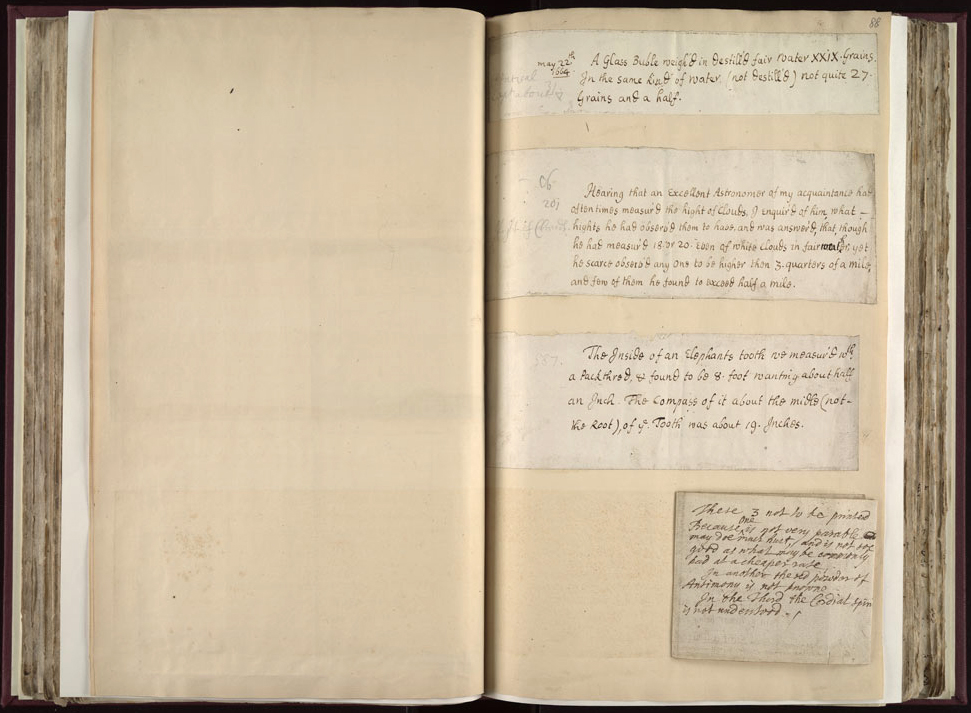 88
may 22th
1664
A Glass Buble weigh'd in destill'd fair water XXIX. Grains.
In the same kind of water (not destill'd) not quite 27.
Grains and a half.
06
201
Hearing that an Excellent Astronomer of my acquaintance had
oftentimes measur'd the hight of Clouds, I enquir'd of him what –
hights he had observ'd them to have, and was answer'd, that, though
he had measur'd 18. or 20. Even of white Clouds in fair weather, yet
he scarce observ'd any one to be higher then 3. quarters of a mile,
and few of them he found to exceed half a mile.
The Inside of an Elephants tooth we measur'd wth
a Packthred, & found to be 8. foot wanting about half
an Inch. The Compass of it about the midle (not-
the Root), of ye. Tooth was about 19. Inches.
These 3 not to be printed
Because one is not very parable
may doe much hurt, and is not soe
good as what may be commonly
had at a cheaper rate.
In another the red powder of
Antimony is not knowne
In the Third the Cordial spirit
is not understood.